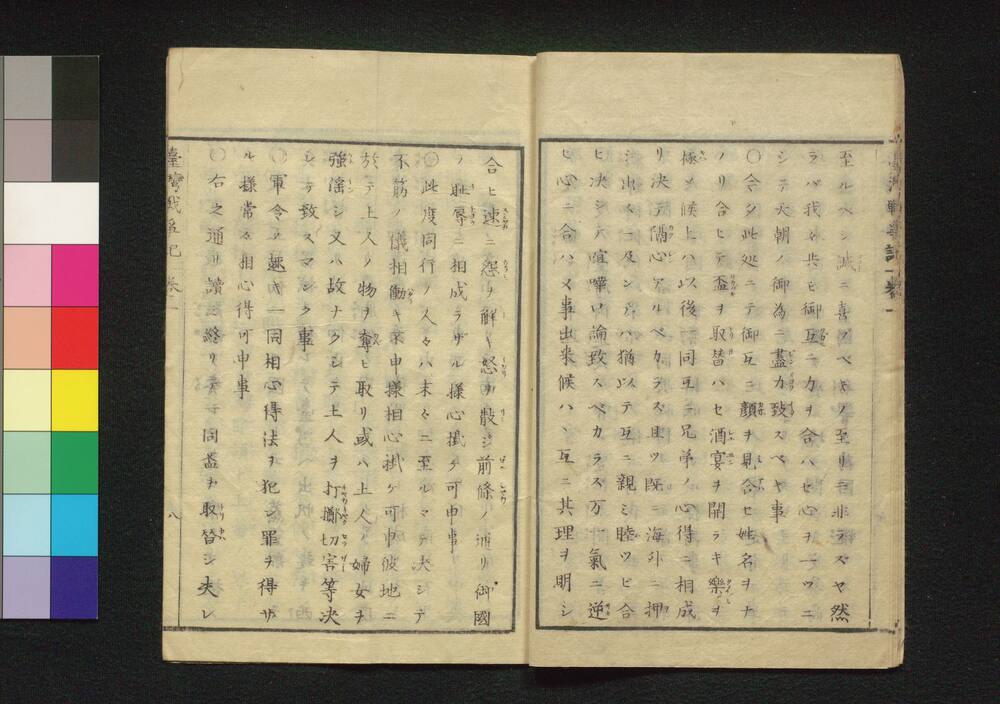 至ルベシ誠ニ喜ブベキノ至リニ非ラズヤ然
ラバ我々共モ御互ニ力ヲ合ハセ心ヲ一ツニ
シテ天朝ノ御為ニ盡力致スベキ事
〇合タ此処ニテ御互ニ顔ヲ見合セ姓名ヲナ
ノリ合ヒテ盃ヲ取替ハセ酒宴ヲ開ラキ樂ヲ
極メ候上ハ以後一同互ニ兄弟ノ心得ニ相成
リ決テ偽心アルベカラズ且ツ既ニ海外ニ押
シ出スニ及ンデハ猶以テ互ニ親ミ睦ツビ合
ヒ決シテ喧嘩口論致スベカラズ万一氣ニ逆
ヒ心ニ合ハヌ事出来候ハヽ互ニ其理ヲ明シ
合ヒ速ニ怨ヲ解キ怒ヲ散ジ前條ノ通リ御國
ノ恥辱ニ相成ラザル様心掛ケ可申事
〇此度同行ノ人々ハ末々ニ至ルマデ決シテ
不筋ノ儀相働キ不申様相心掛ケ可申彼地ニ
於テ土人ノ物ヲ奪ヒ取リ或ハ土人ノ婦女ヲ
強淫シ又ハ故ナクシテ土人ヲ打擲切害等決
シテ致スマジク事
〇軍令ノ趣キ一同相心得法ヲ犯シ罪ヲ得ザ
ル様常々相心得可申事
〇右之通リ讀ミ終リテ一同盃ヲ取替シ夫レ
臺灣戰爭記 巻一
八